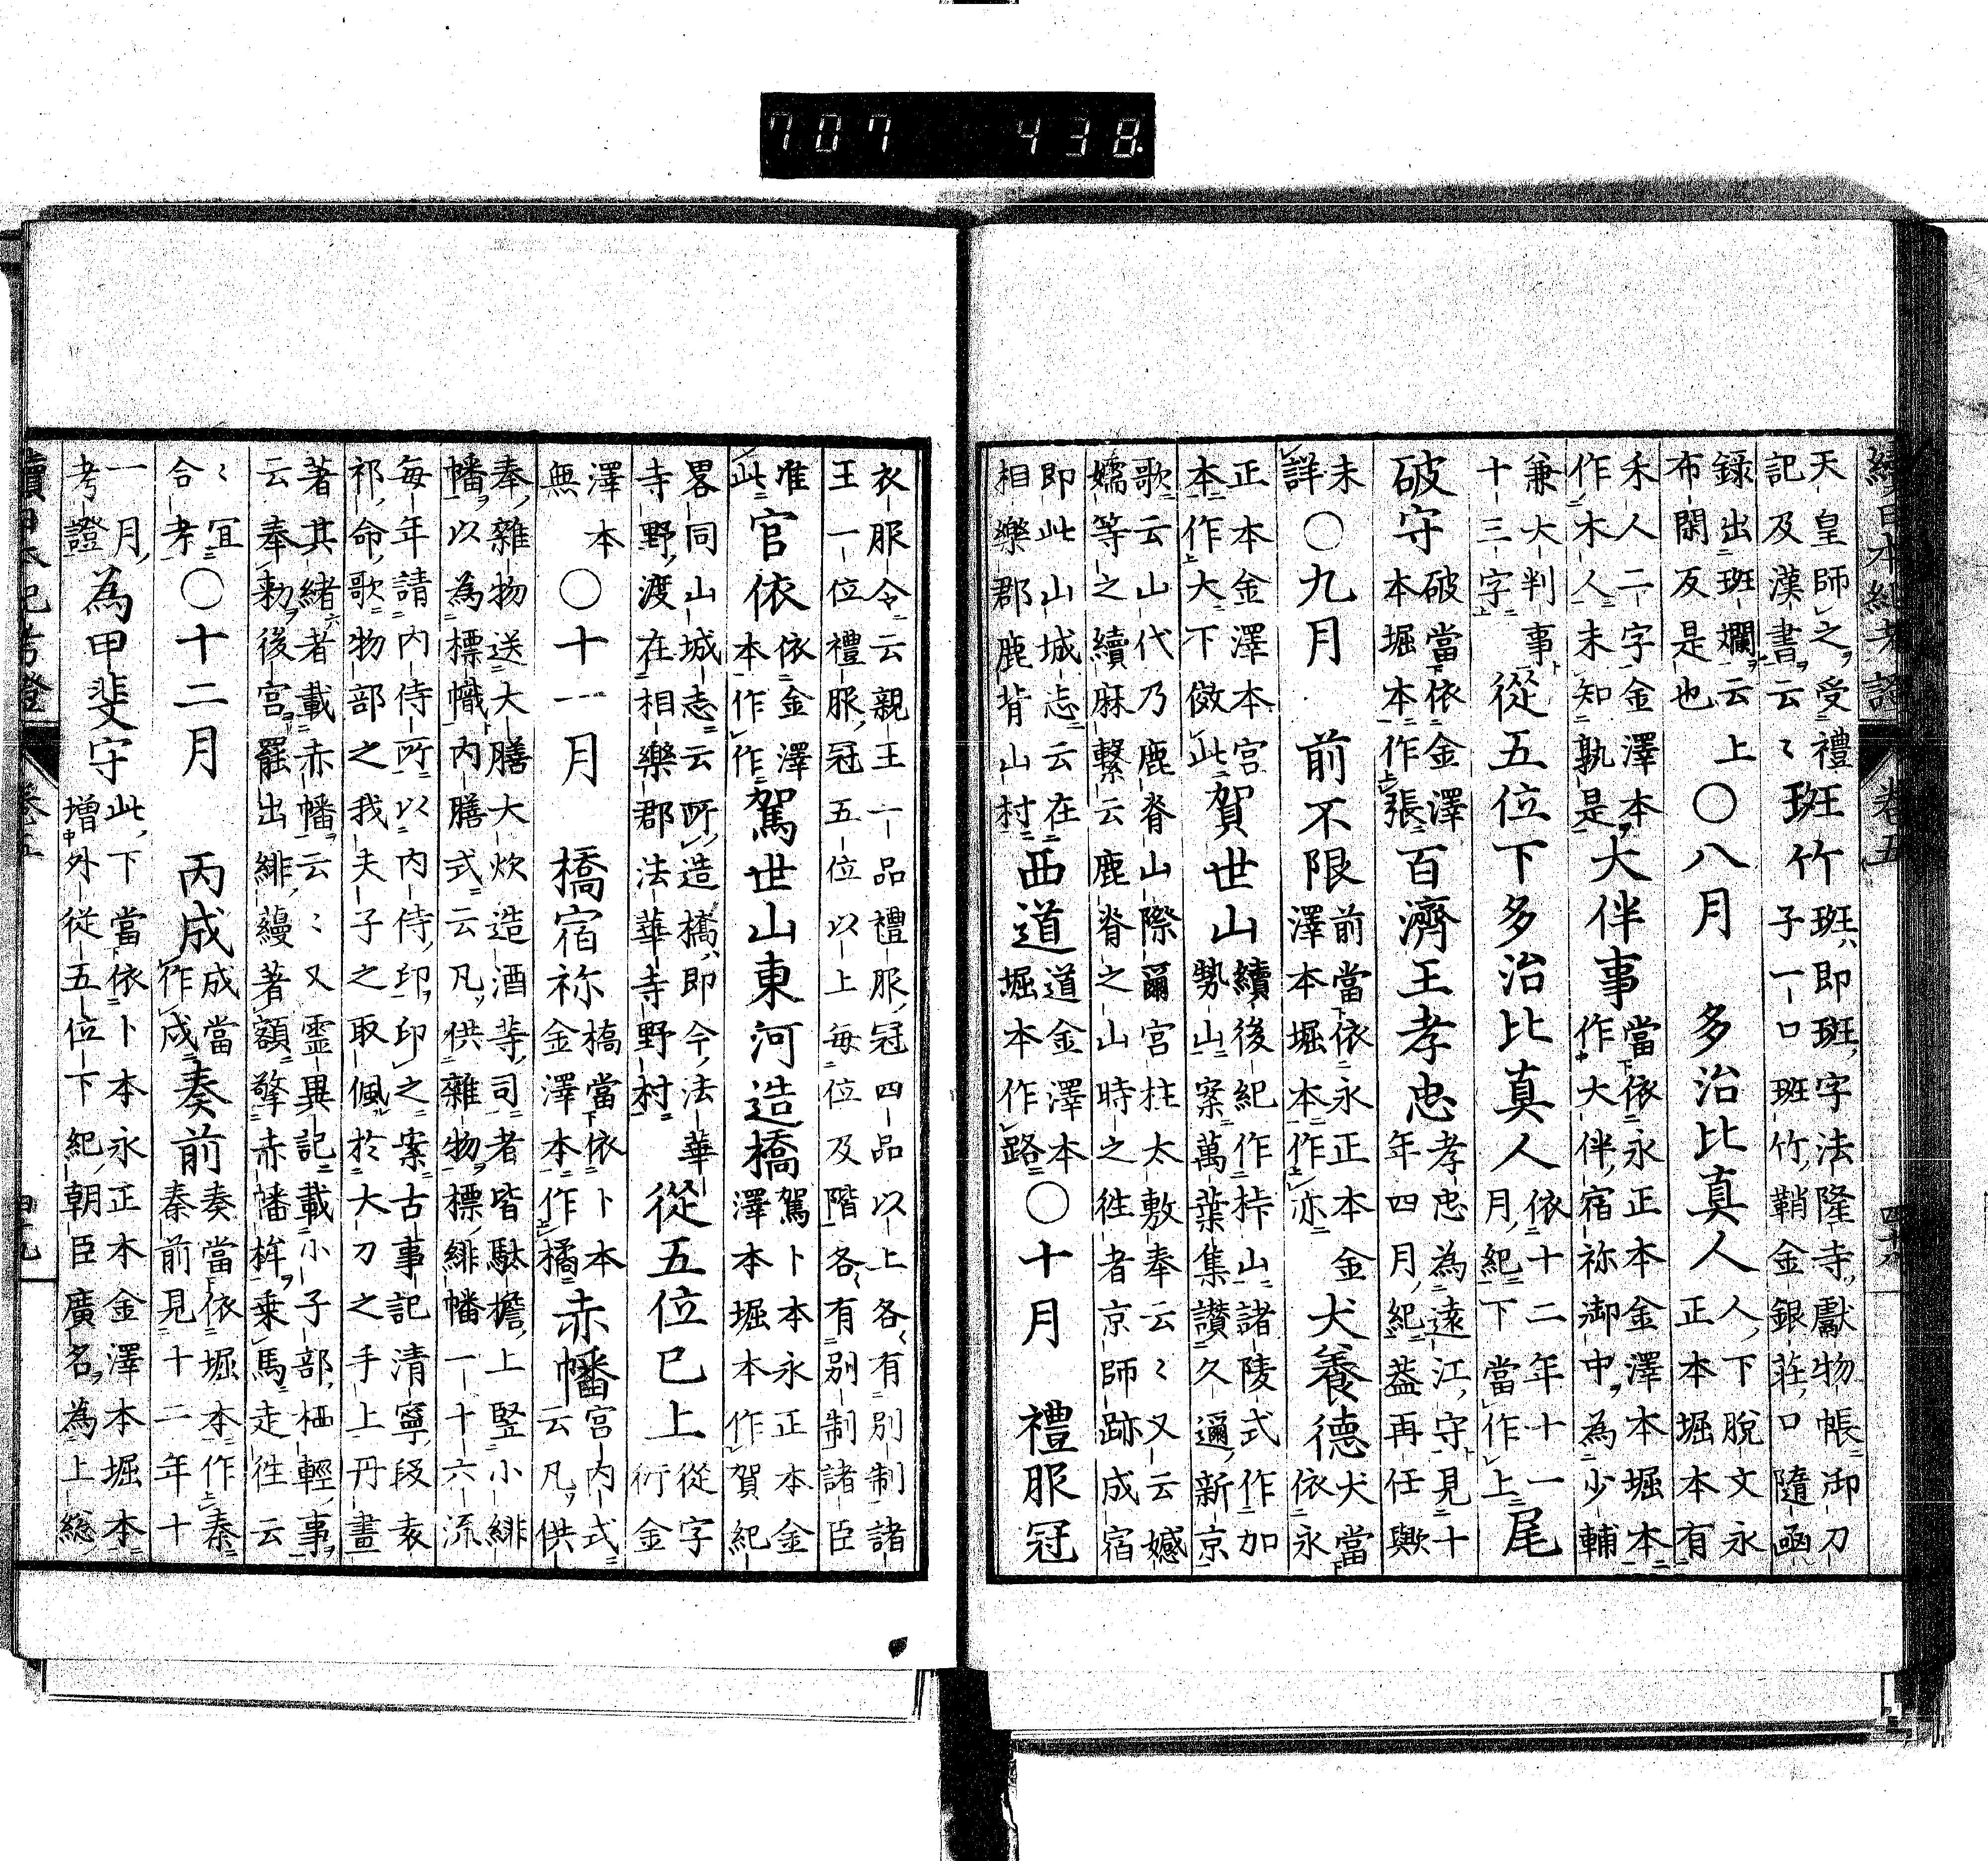 707 438
續日本紀考證 卷五 四十八
天皇師之受禮
記及漢書云〻班竹班即班字法隆寺獻物帳御刀
子一口班竹鞘金銀莊口隨函
錄出班斕云上
布閑反是也〇八月 多治比真人人下脫文永
正本堀本有
禾人二字金澤本
作木人未知孰是大伴事當依永正本金澤本堀本
作大伴宿祢御中為少輔
兼大判事
十三字從五位下多治比真人依十二年十一
月紀下當作上尾
破守破當依金澤
本堀本作張百濟王孝忠孝忠為遠江守見十
年四月紀蓋再任歟
未
詳〇九月 前不限前當依永正本金
澤本堀本作亦犬養德犬當
依永
正本金澤本宮
本作大下倣此賀世山續後紀作桛山諸陵式作加
勢山案萬葉集讚久邇新京
歌云山代乃鹿脊山際爾宮柱太敷奉云〻又云憾
嬬等之續麻繫云鹿脊之山時之往者京師跡成宿
即此山城志云在
相樂郡鹿背山村西道道金澤本
堀本作路〇十月 禮服冠
衣服令云親王一品禮服冠四品以上各〻有別制諸
王一位禮服冠五位以上每位及階各〻有別制諸臣
准
此官依依金澤
本作作駕世山東河造橋駕卜本永正本金
澤本堀本作賀紀
畧同山城志云所造橋即今法華
寺野渡在相樂郡法華寺野村從五位已上從字
衍金
澤本
無〇十一月 橋宿祢橋當依卜本
金澤本作橘赤幡宮內式
云凡供
奉雜物送大膳大炊造酒等司者皆駄擔上竪小緋
幡以為標幟內膳式云凡供雜物標緋幡一十六流
每年請內侍所以內侍印印之案古事記清寧段袁
祁命歌物部之我夫子之取佩於大刀之手上丹畫
著其緒者載赤幡云〻又靈異記載小子部栖輕事
云奉勅後宮罷出緋縵著額擎赤幡桙乘馬走往云
〻宜
合考〇十二月 丙成成當
作戌奏前奏當依堀本作秦
秦前見十二年十
一月
考證為甲斐守此下當依卜本永正本金澤本堀本
增外從五位下紀朝臣廣名為上總
續日本紀考證 卷五 四十九